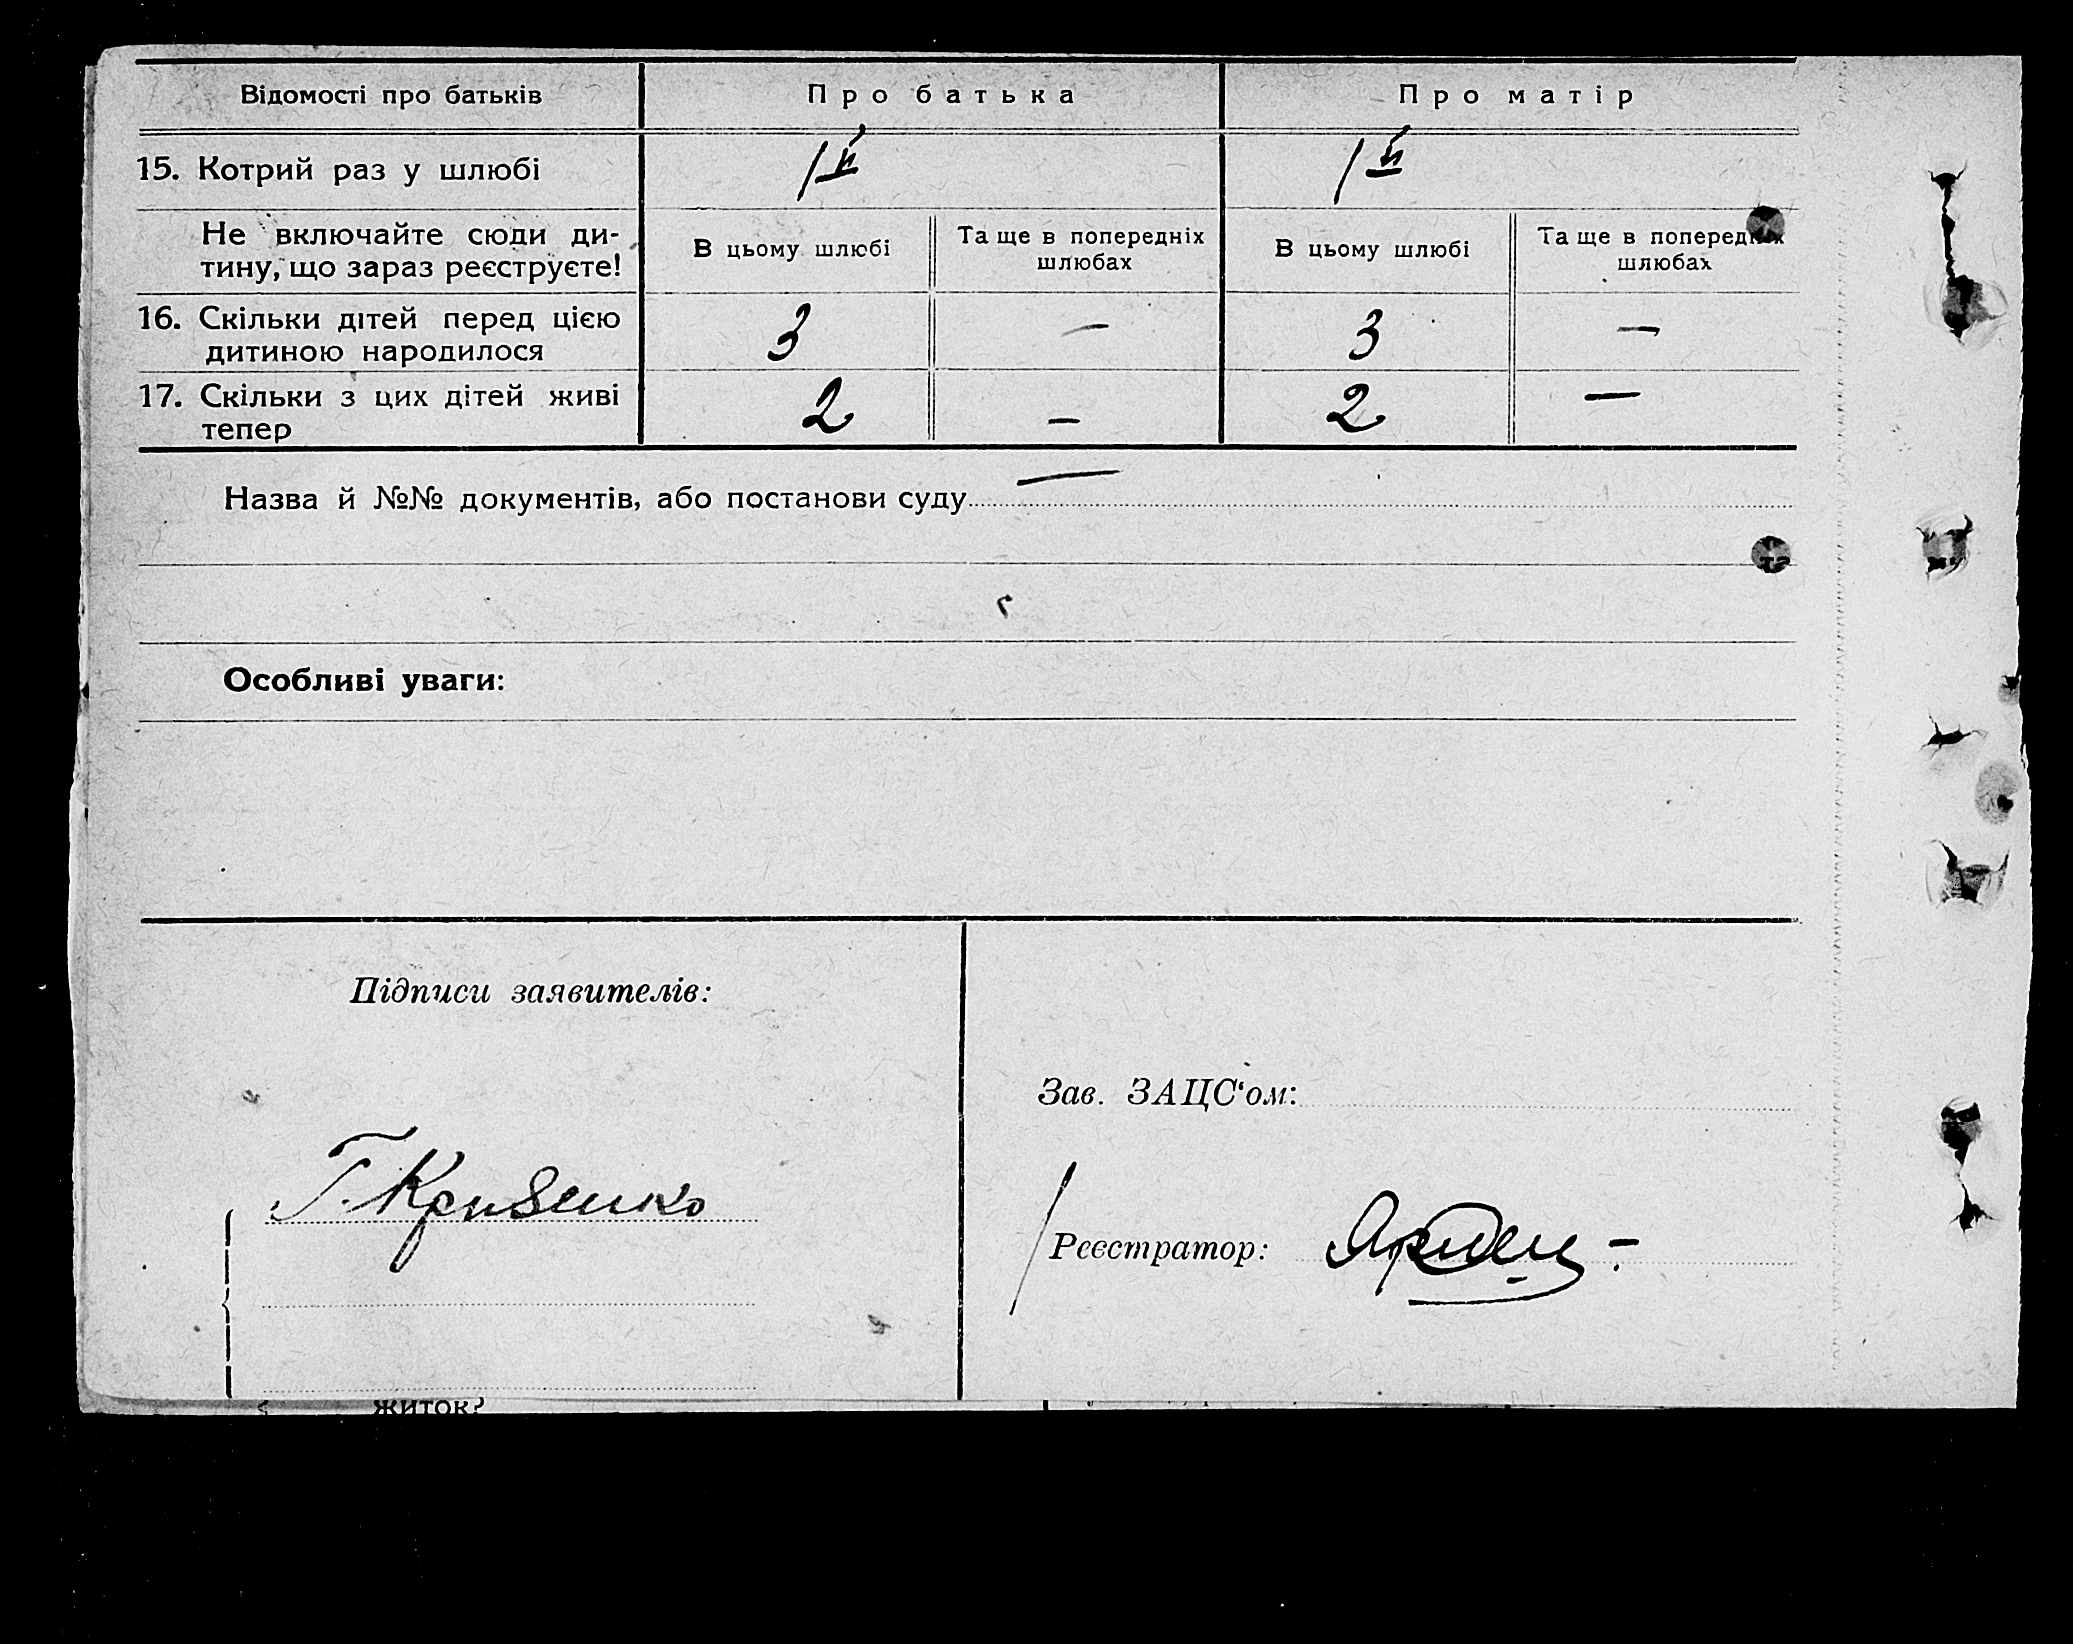 Відомості про батьків Про батька Про матір
15. Котрий раз у шлюбі 1й 1й
Не включайте сюди ди-
тину, що зараз реєструєте!
В цьому шлюбі Та ще в попередніх
шлюбах
В цьому шлюбі Та ще в попередніх
шлюбах
16. Скільки дітей перед цією
дитиною народилося
3 — 3 —
17. Скільки з цих дітей живі
тепер
2 — 2 —
Назва й №№ документів, або постанови суду —
Особливі уваги:
Підписи заявителів:
Зав. ЗАЦС'ом:
Г. Кривенко
Реєстратор:
житок?